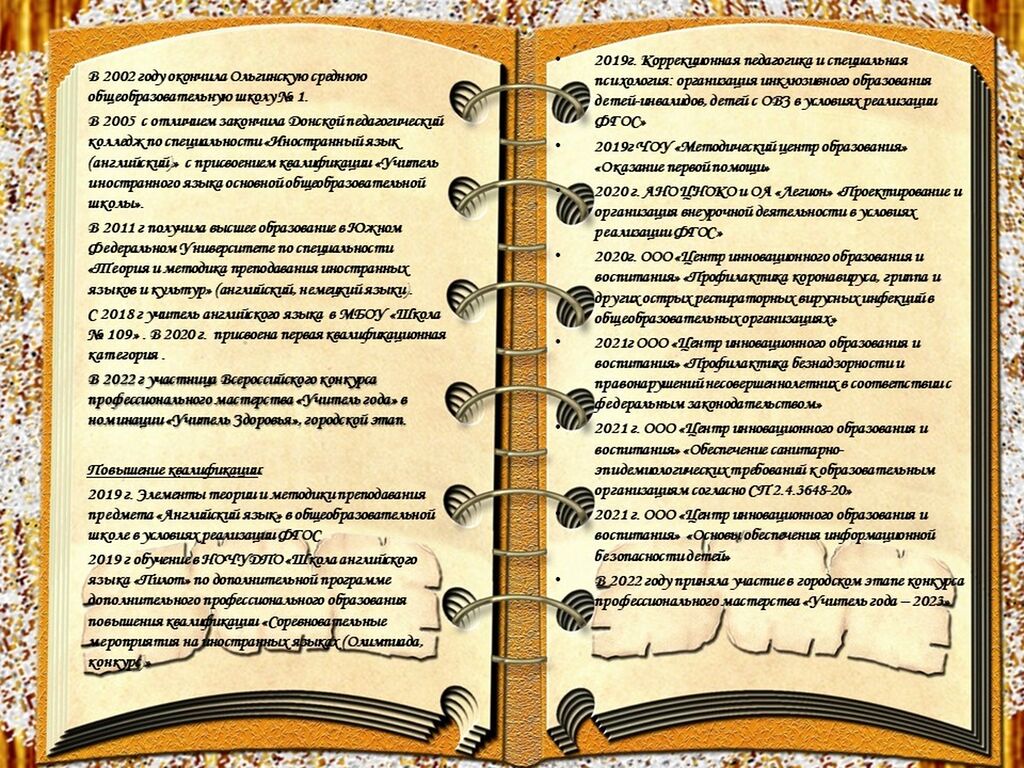 В 2002 году окончила Ольгинскую среднюю
общеобразовательную школу № 1.
В 2005 с отличием закончила Донской педагогический
колледж по специальности «Иностранный язык
(английский)» с присвоением квалификации «Учитель
иностранного языка основной общеобразовательной
школы».
В 2011 г получила высшее образование в Южном
Федеральном Университете по специальности
«Теория и методика преподавания иностранных
языков и культур» (английский, немецкий языки).
С 2018 г учитель английского языка в МБОУ «Школа
№ 109» . В 2020 г. присвоена первая квалификационная
категория .
В 2022 г участница Всероссийского конкурса
профессионального мастерства «Учитель года» в
номинации «Учитель Здоровья», городской этап.
Повышение квалификации:
2019 г. Элементы теории и методики преподавания
предмета «Английский язык» в общеобразовательной
школе в условиях реализации ФГОС
2019 г обучение в НОЧУДПО «Школа английского
языка «Пилот» по дополнительной программе
дополнительного профессионального образования
повышения квалификации «Соревновательные
мероприятия на иностранных языках (Олимпиада,
конкурс)»
• 2019г. Коррекционная педагогика и специальная
психология: организация инклюзивного образования
детей-инвалидов, детей с ОВЗ в условиях реализации
ФГОС»
• 2019г ЧОУ «Методический центр образования»
«Оказание первой помощи»
• 2020 г. АНО ЦНОКО и ОА «Легион» «Проектирование и
организация внеурочной деятельности в условиях
реализации ФГОС»
• 2020г. ООО «Центр инновационного образования и
воспитания» «Профилактика коронавируса, гриппа и
других острых респираторных вирусных инфекций в
общеобразовательных организациях»
• 2021г ООО «Центр инновационного образования и
воспитания» «Профилактика безнадзорности и
правонарушений несовершеннолетних в соответствии с
федеральным законодательством»
• 2021 г. ООО «Центр инновационного образования и
воспитания» «Обеспечение санитарно-
эпидемиологических требований к образовательным
организациям согласно СП 2.4.3648-20»
• 2021 г. ООО «Центр инновационного образования и
воспитания» «Основы обеспечения информационной
безопасности детей»
• В 2022 году приняла участие в городском этапе конкурса
профессионального мастерства «Учитель года – 2023»